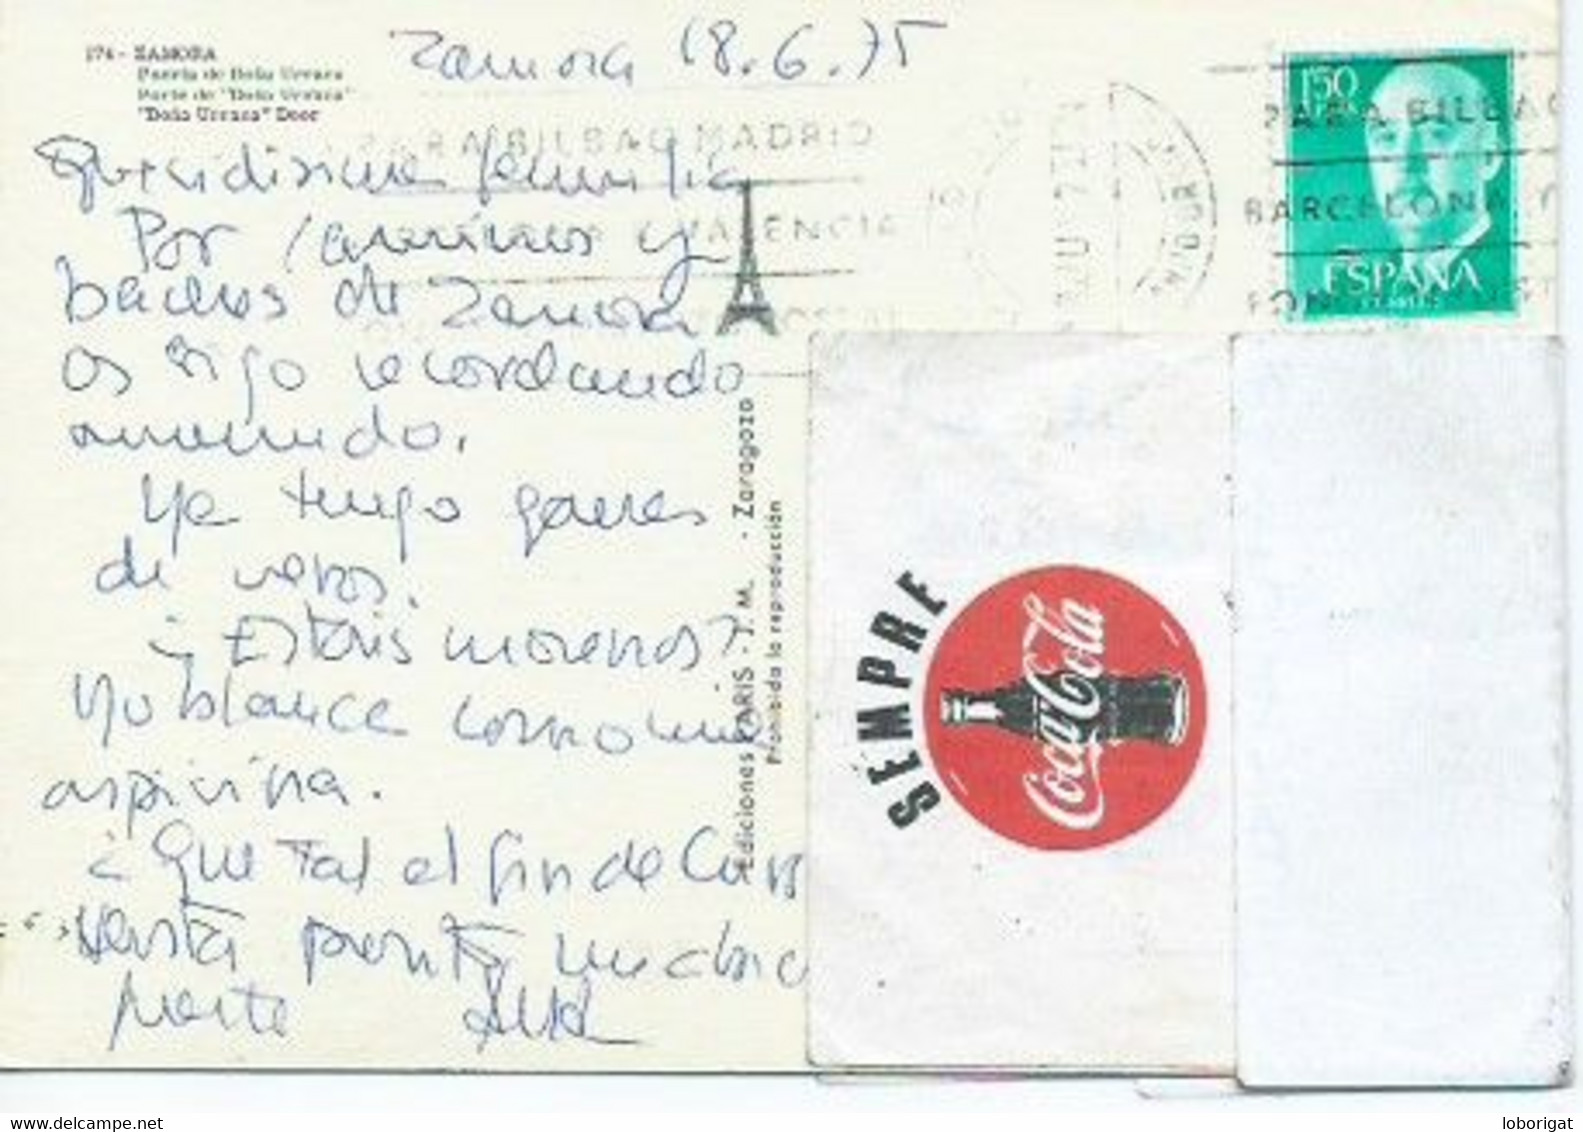 174 - ZAMORA
Puerta de Doña Urraca
Porte de "Doña Urraca"
"Doña Urraca" Door
Zamora 18.6.75
PARA BILBAO MADRID
VALENCIA
1'50
PARA BILBAO
BARCELONA
ESPAÑA
Queridisima familia
Por / caminos y
de Zamora
os sigo recordando
Ya tengo ganas
de veros.
¿Estais morenos?
Yo blanca como una
aspirina.
¿Que tal el fin de curso
Hasta pronto muchos
Ediciones PARIS - J.M. - Zaragoza
Prohibida la reproducción
SEMPRE
Coca-Cola
loborigat